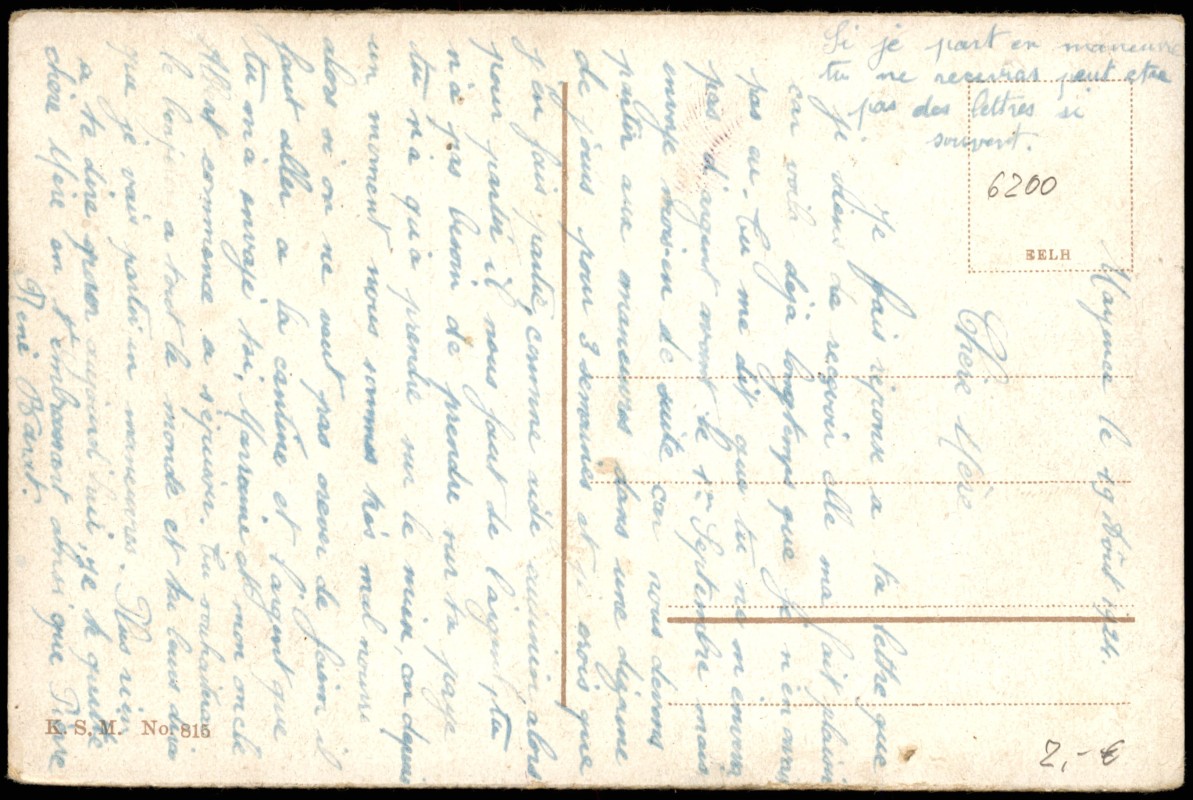 Mayence le 19 Août 1924.
Chère Mère
Je fais réponse a ta lettre que
je viens de recevoir elle ma fait plaisir
car voila déja longtemps que je n'en avais
pas eu. Tu me dit que tu ne m'enverra
pas d'argent avant le 1er Septembre mais
envoye mois-en de suite car nous devons
partir aux maneuvres dans une dizaine
de jours pour 3 semaines et je crois que
j'en fais partie, comme aide cuisinier alors
pour partir il nous faut de l'argent, tu
n'a pas besoin de prendre sur ta paye
tu n'a qu'a prendre sur le mien, car depuis
un moment nous sommes très mal nourri
alors si on ne veut pas crever de faim il
faut aller a la cantine et l'argent que
tu m'a envoyé toi, Marraine et mon oncle
Albert commence a s'épuiser. Tu souhaitera
le bonjour a tout le monde et tu leurs dira
que je vais partir en maneuvres. Plus rien
a te dire grison aujourd'hui, je te quitte
chère Mère en t'embrassant ainsi que Pierre
René
Si je part en maneuvre
tu ne recevras peut etre
pas des lettres si
souvent.
6200
EELH
K. S. M. No. 815
2,- €